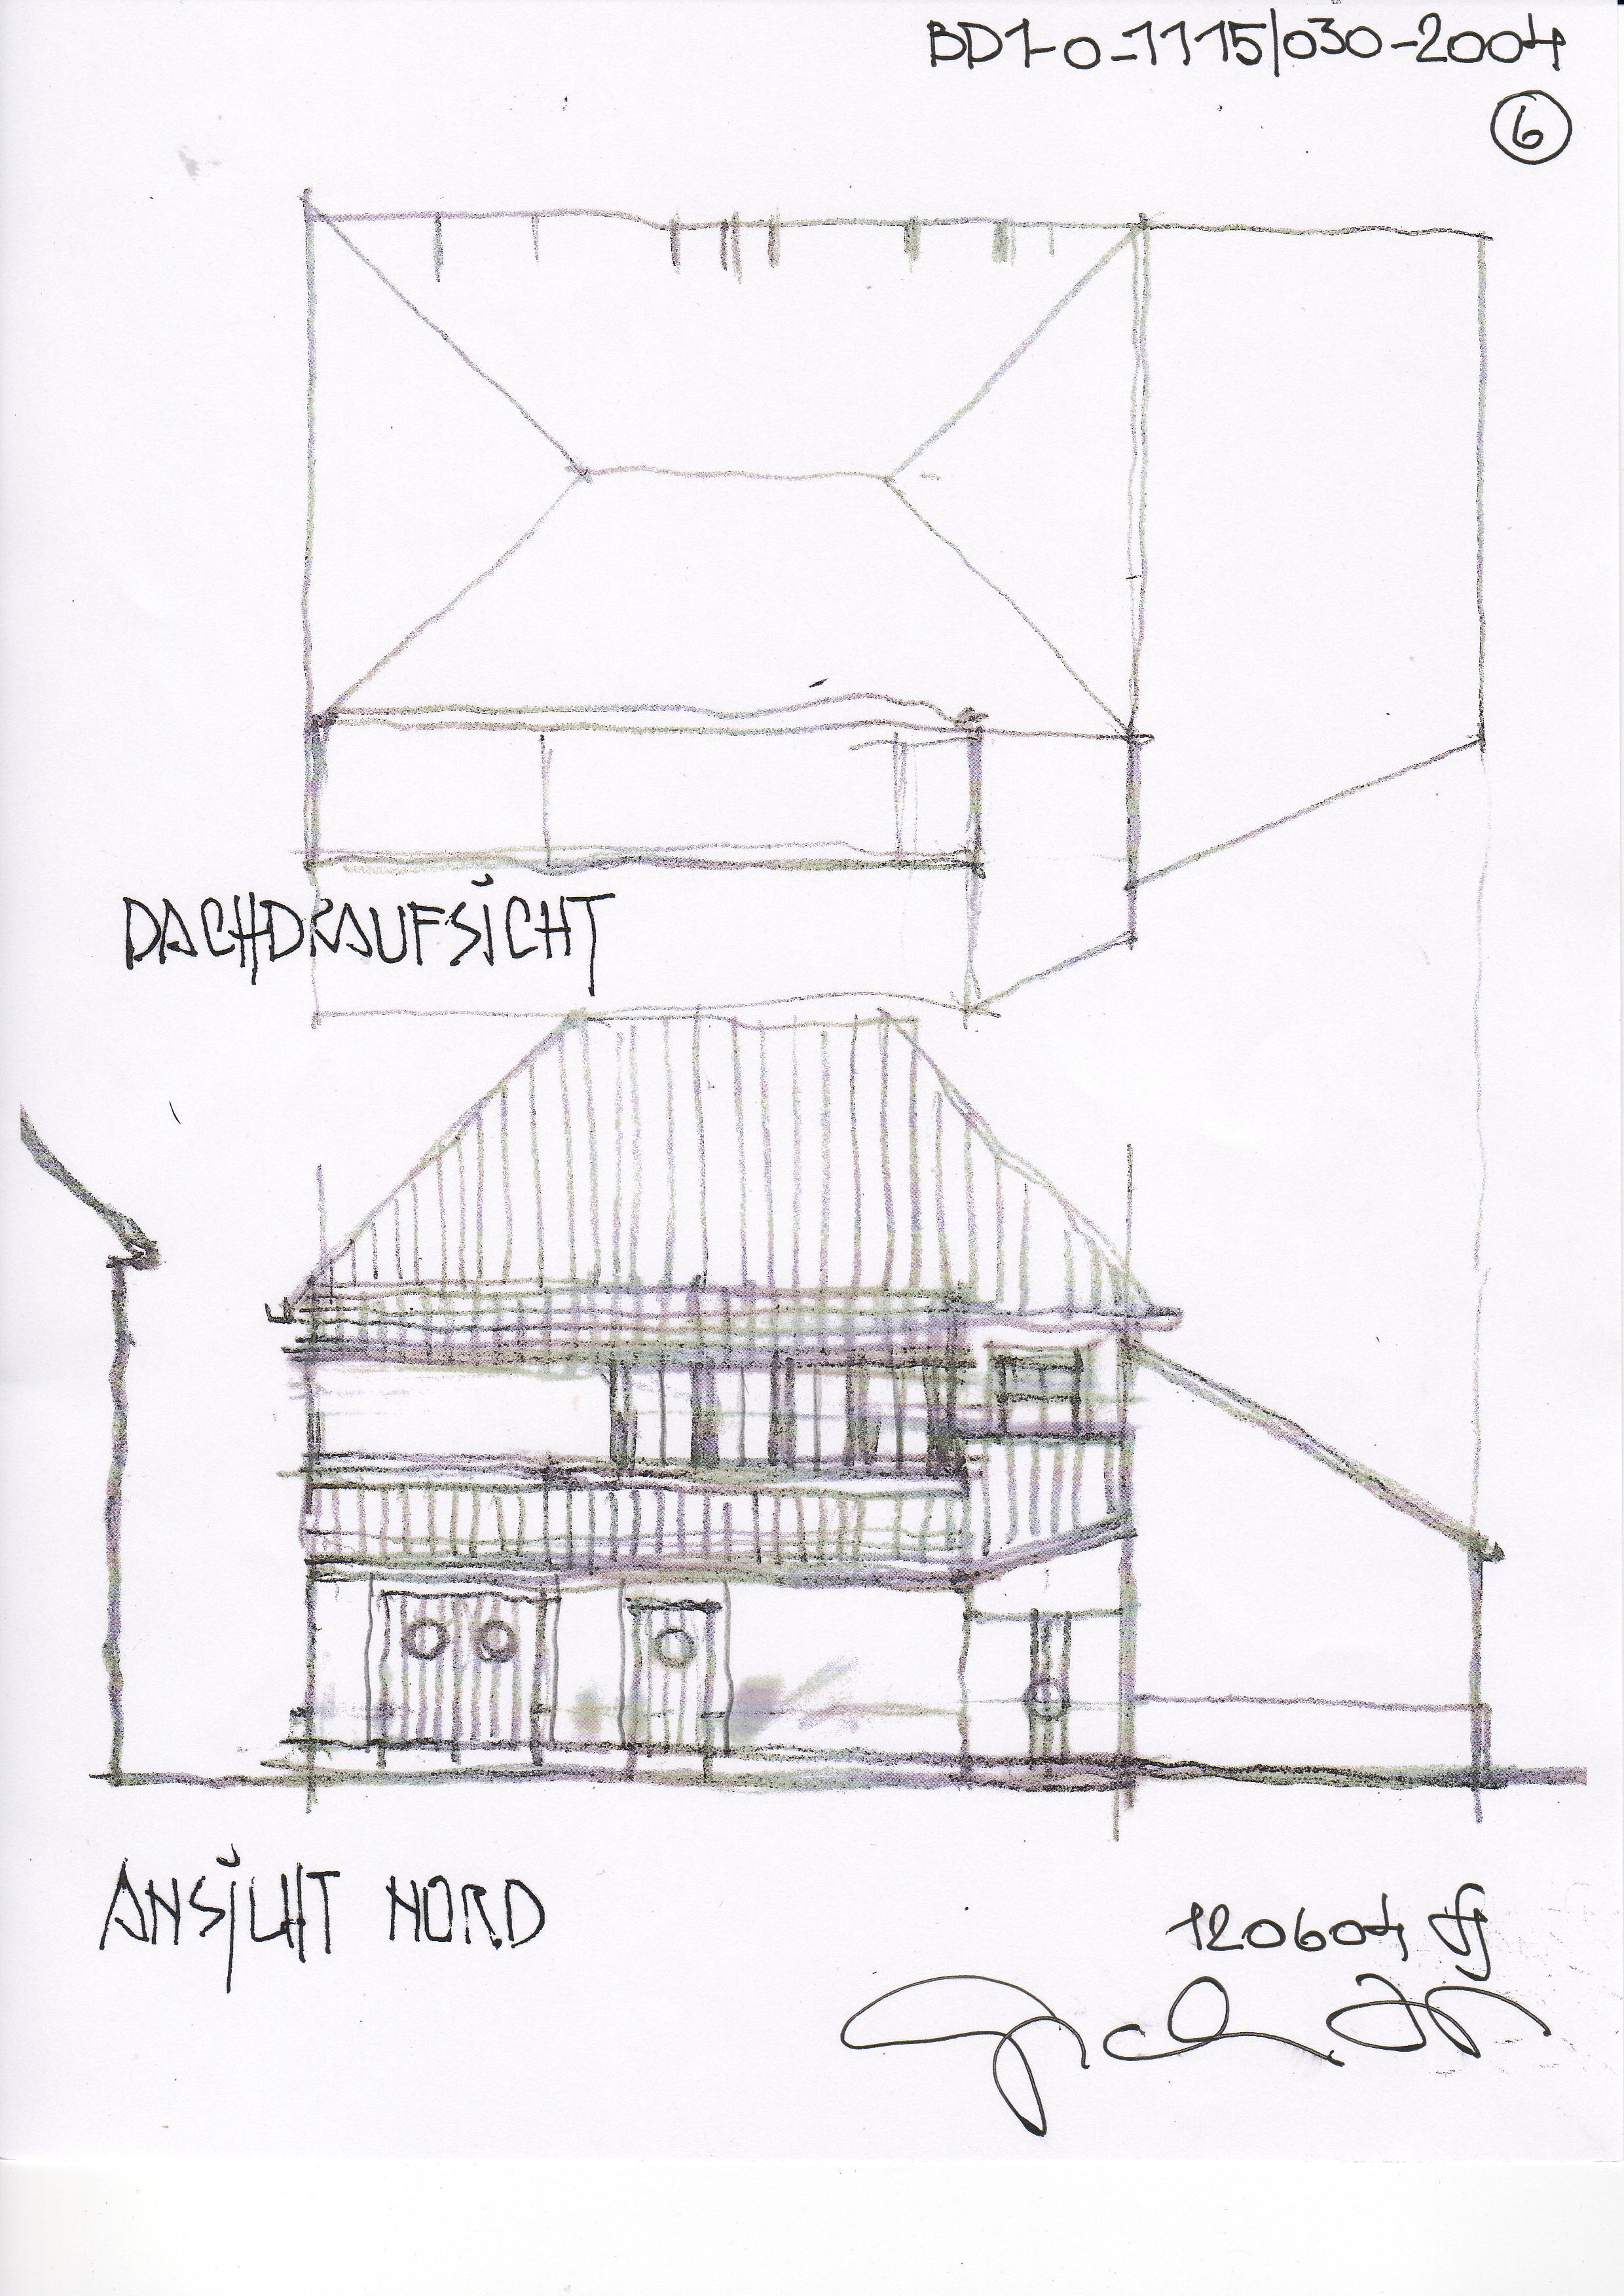 BD1-0-1115/030-2004
6
DACHDRAUFSICHT
ANSICHT NORD
120604